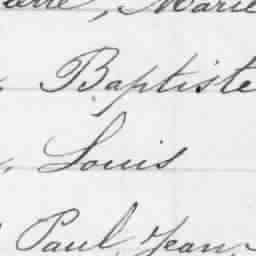 Marie
Baptiste
, Louis
Paul, Jean,